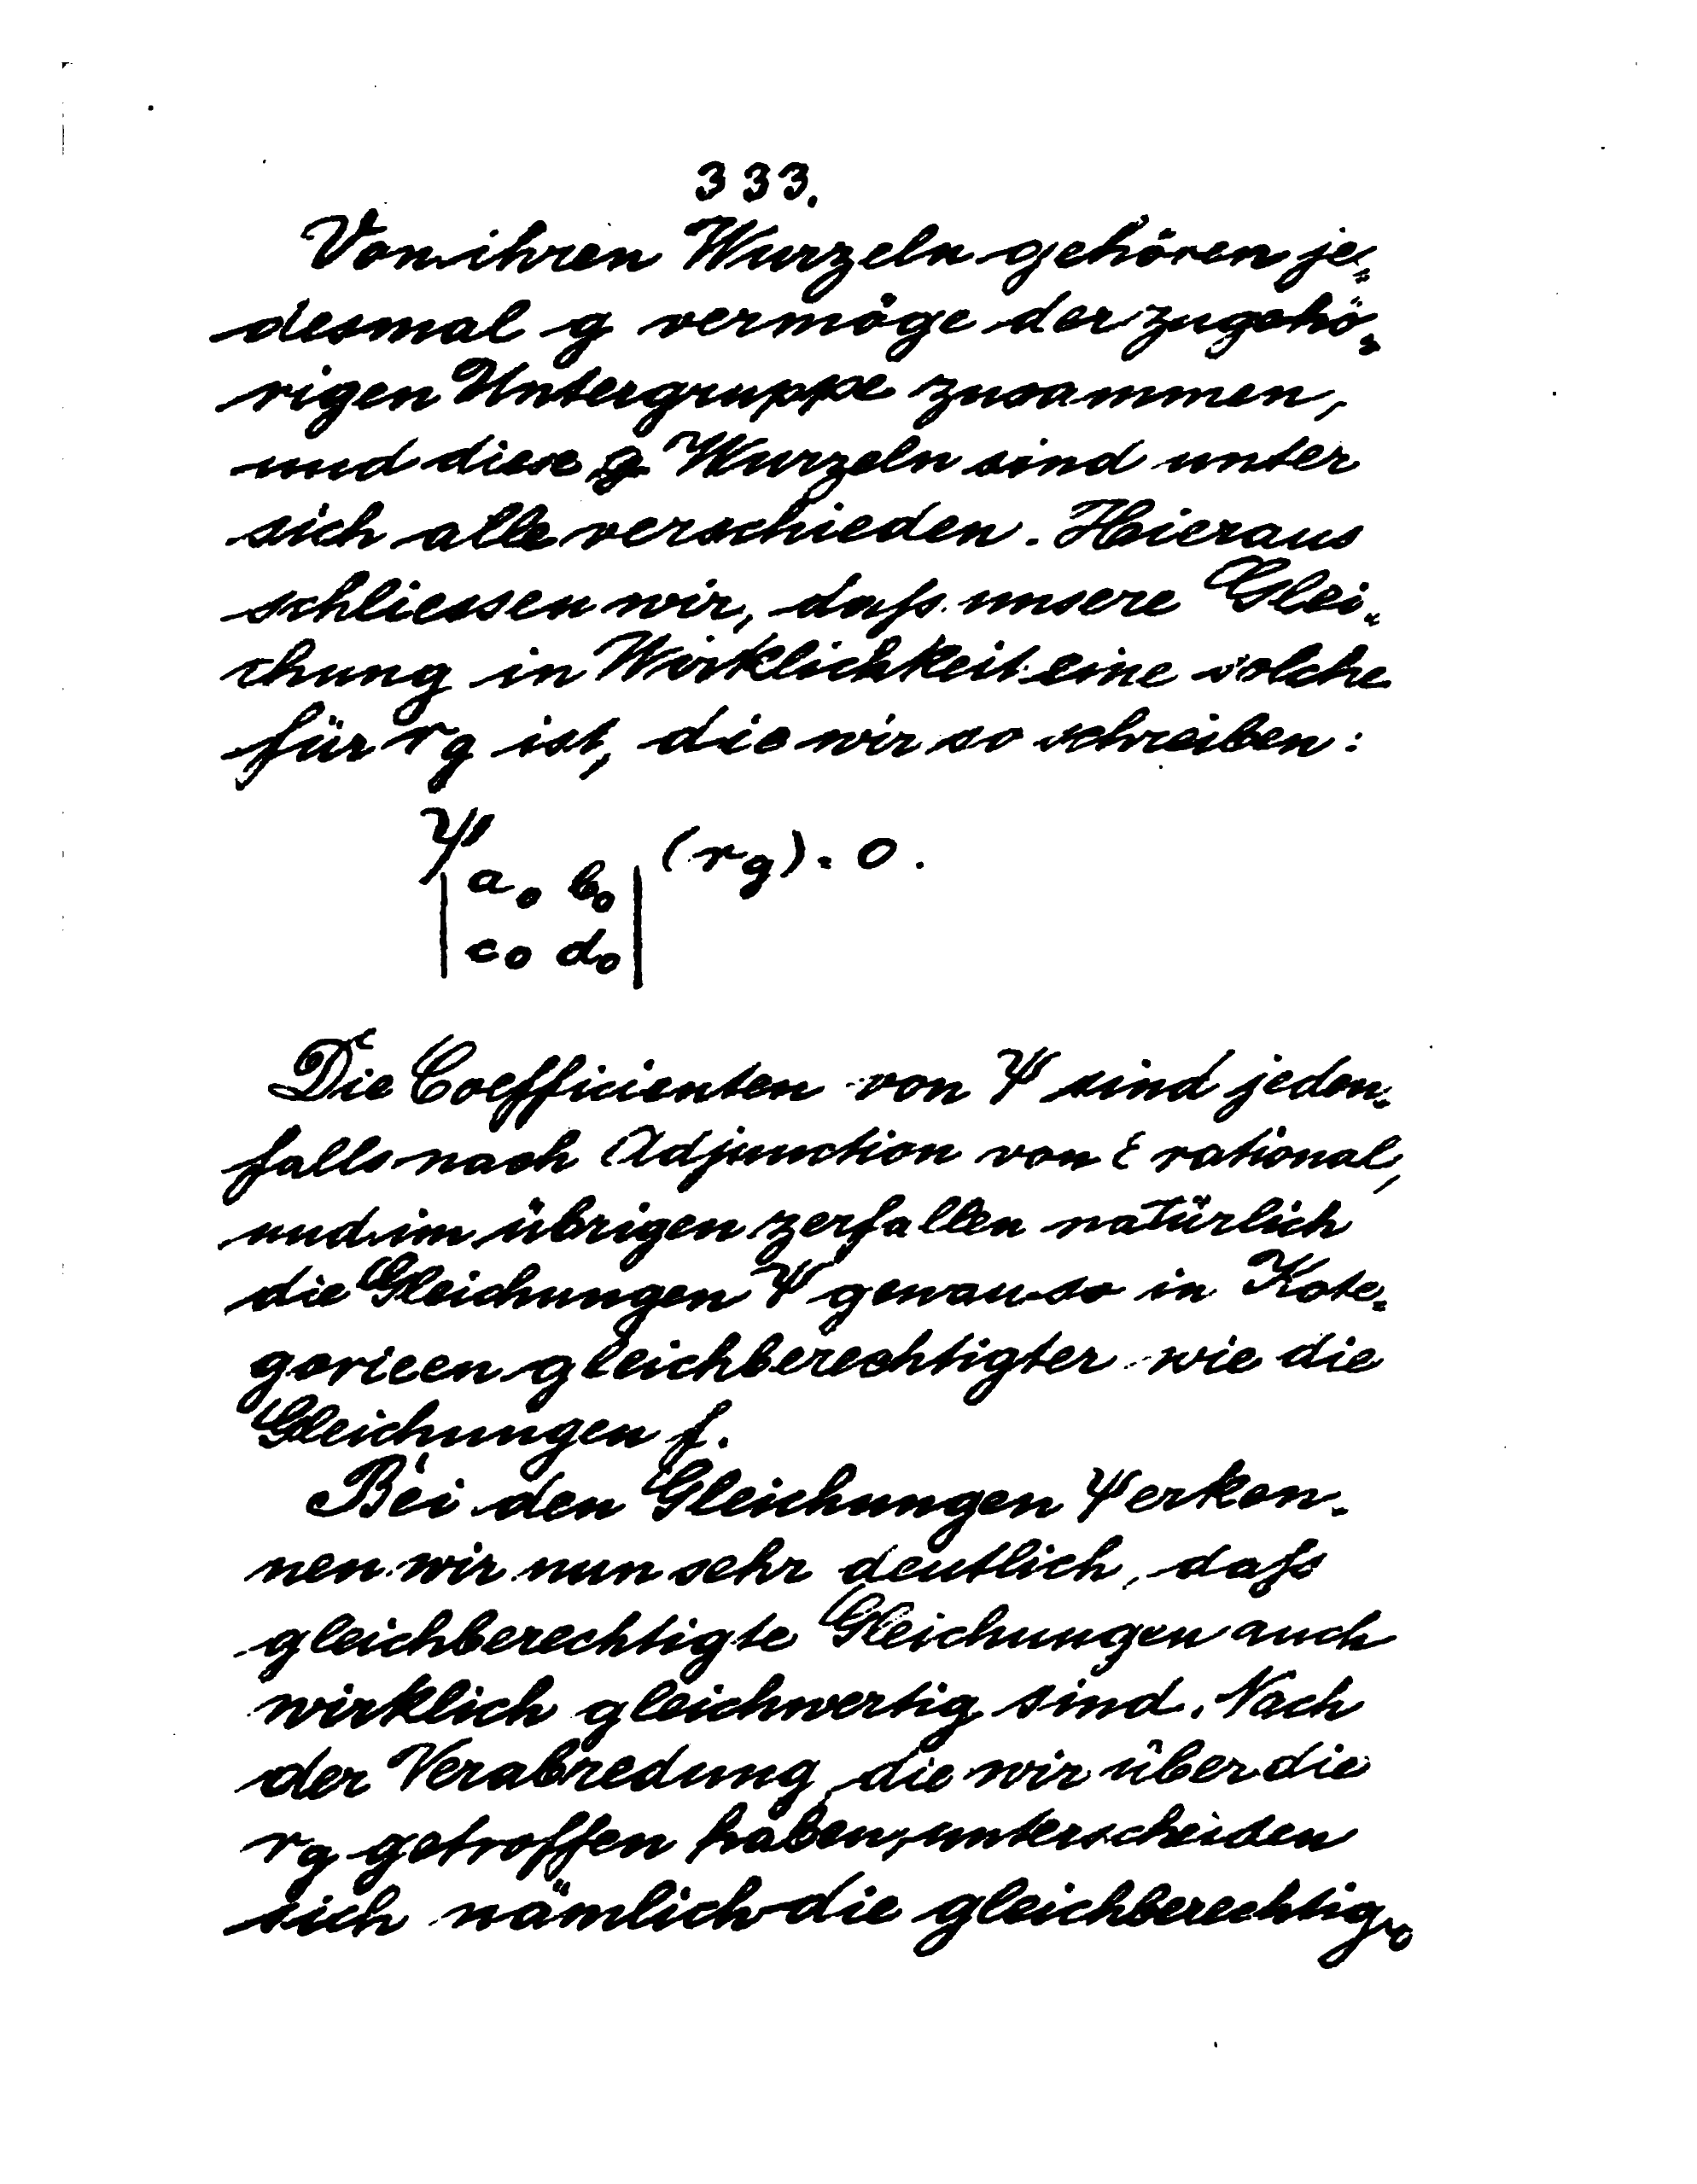 333.
Von ihren Wurzeln gehören je-
desmal g vermöge der zugehö-
rigen Untergruppe zusammen,
und diese g Wurzeln sind unter
sich alle verschieden. Hieraus
schliessen wir, daſs unsere Glei-
chung in Wirklichkeit eine solche
für r_g ist, die wir so schreiben:
Ψ (r_g) = 0.
| a_0 b_0 |
| c_0 d_0 |
Die Coefficienten von Ψ sind jeden-
falls nach Adjunction von ε rational,
und im übrigen zerfallen natürlich
die Gleichungen Ψ genau so in Kate-
gorieen gleichberechtigter wie die
Gleichungen f.
Bei den Gleichungen Ψ erken-
nen wir nun sehr deutlich, daſs
gleichberechtigte Gleichungen auch
wirklich gleichwertig sind. Nach
der Verabredung, die wir über die
r_g getroffen haben, unterscheiden
sich nämlich die gleichberechtig-